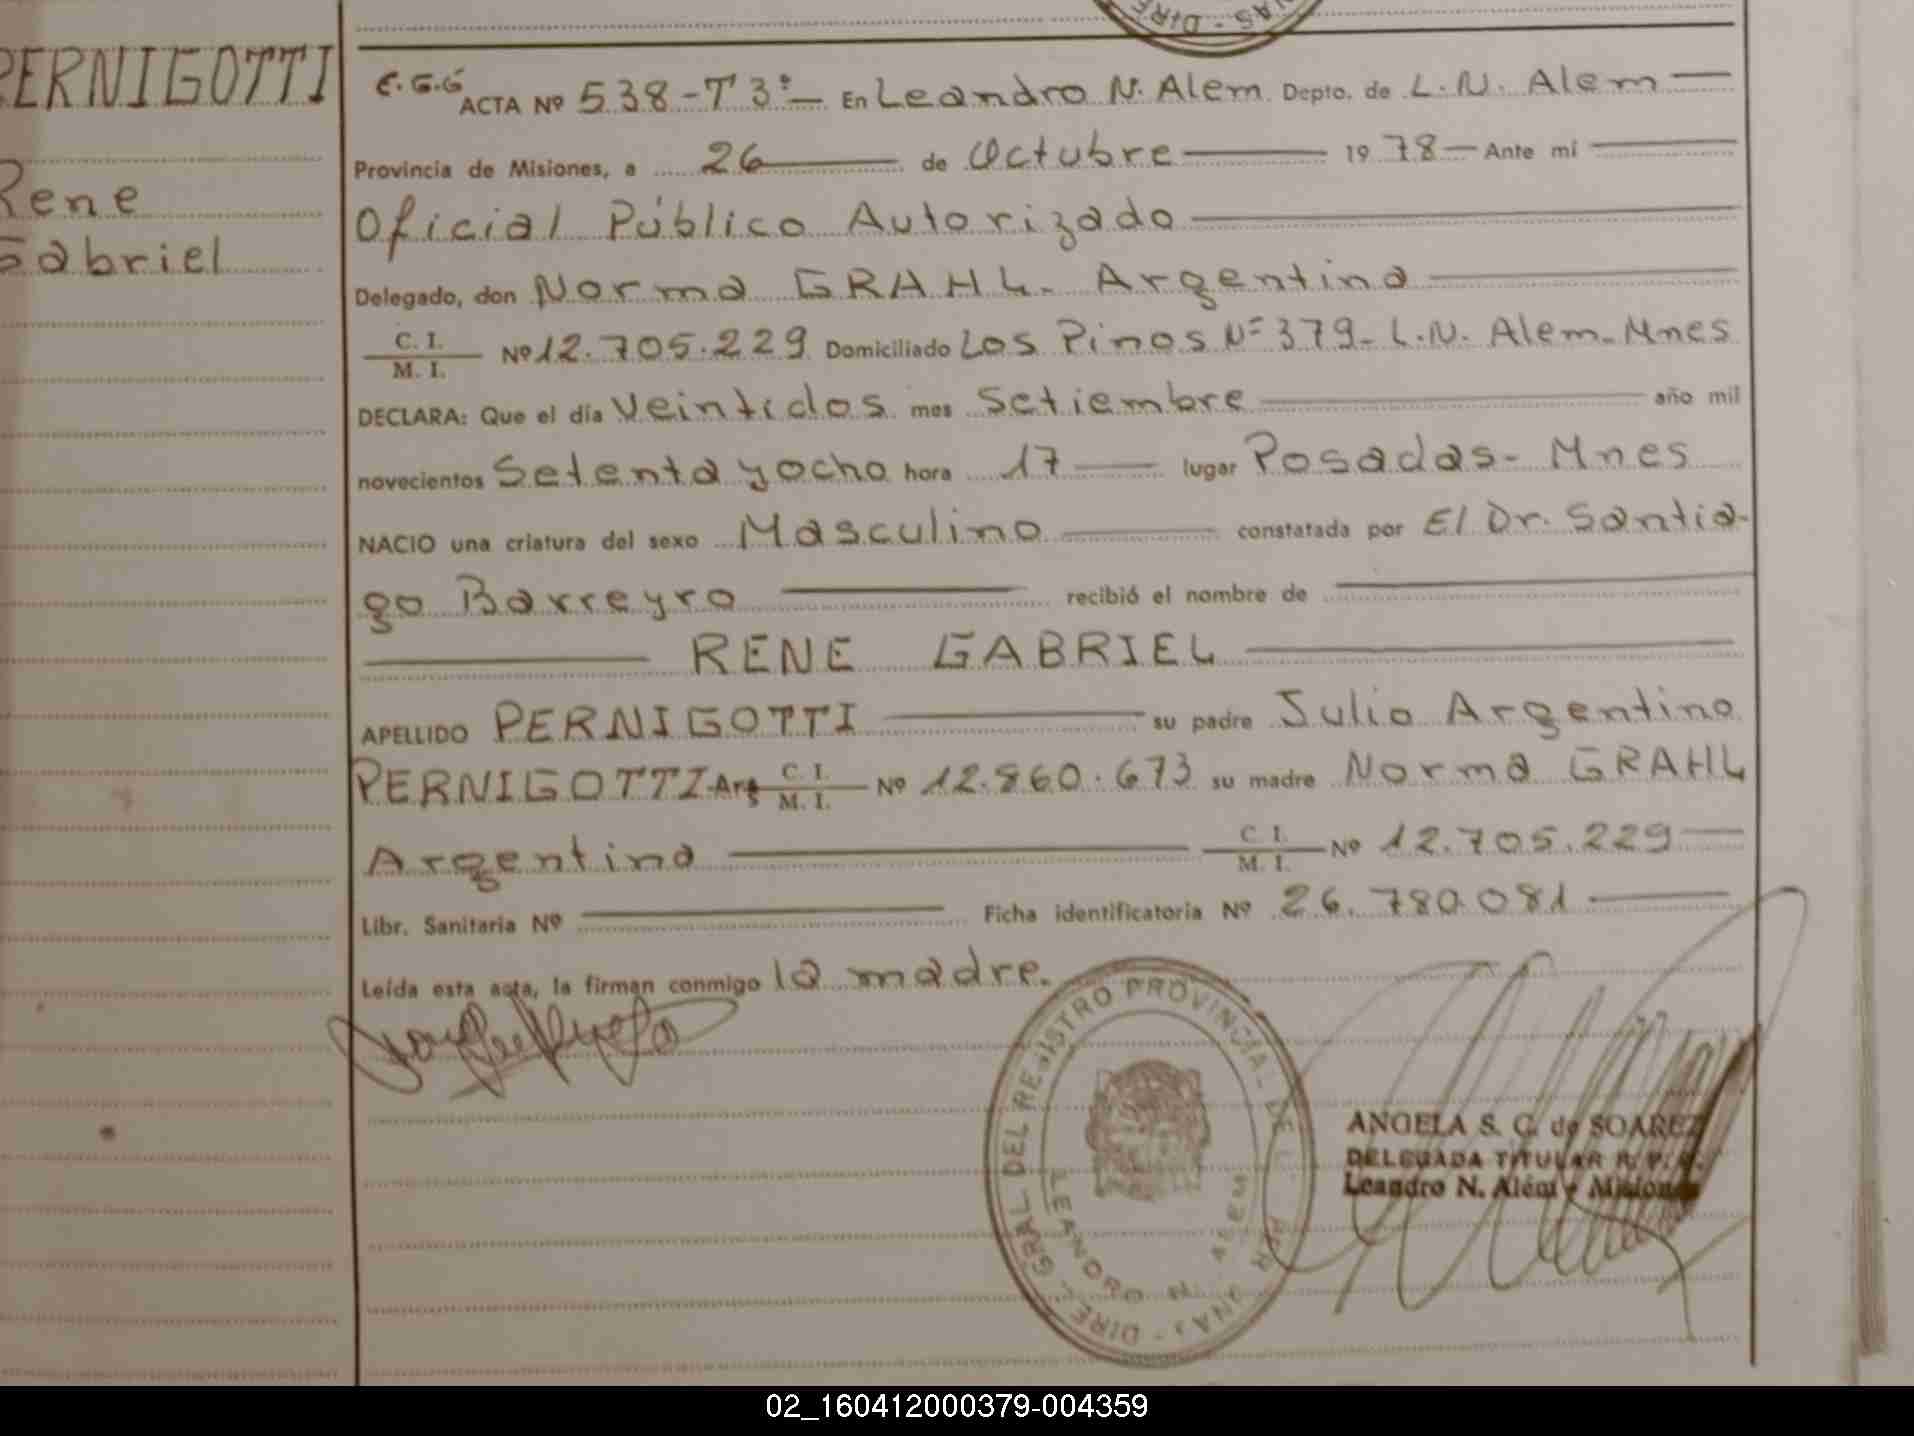 PERNIGOTTI
Rene
Gabriel
E.G.G
ACTA Nº 538-T3º— En Leandro N. Alem Depto. de L. N. Alem —
Provincia de Misiones, a 26 — de Octubre — 19 78 — Ante mi —
Oficial Público Autorizado —
Delegado, don Norma GRAHL - Argentina —
C. I.
M. I. Nº 12.705.229 Domiciliado Los Pinos Nº 379 - L.N. Alem - Mnes
DECLARA: Que el día Veintidos mes Setiembre — año mil
novecientos Setenta y ocho hora 17 — lugar Posadas - Mnes
NACIO una criatura del sexo Masculino — constatada por El Dr. Santia-
go Barreyro — recibió el nombre de —
— RENE GABRIEL —
APELLIDO PERNIGOTTI — su padre Julio Argentino
PERNIGOTTI - Arg C. I. M. I. Nº 12.860.673 su madre Norma GRAHL
Argentina — C. I. M. I. Nº 12.705.229 —
Libr. Sanitaria Nº — Ficha identificatoria Nº 26.780.081 —
Leída esta acta, la firman conmigo la madre.
GRAL DEL REGISTRO PROVINCIAL DE L
LEANDRO N. ALEM
ANGELA S. C. de SOAREZ
DELEGADA TITULAR R. P. P.
Leandro N. Alem - Misiones
02_160412000379-004359